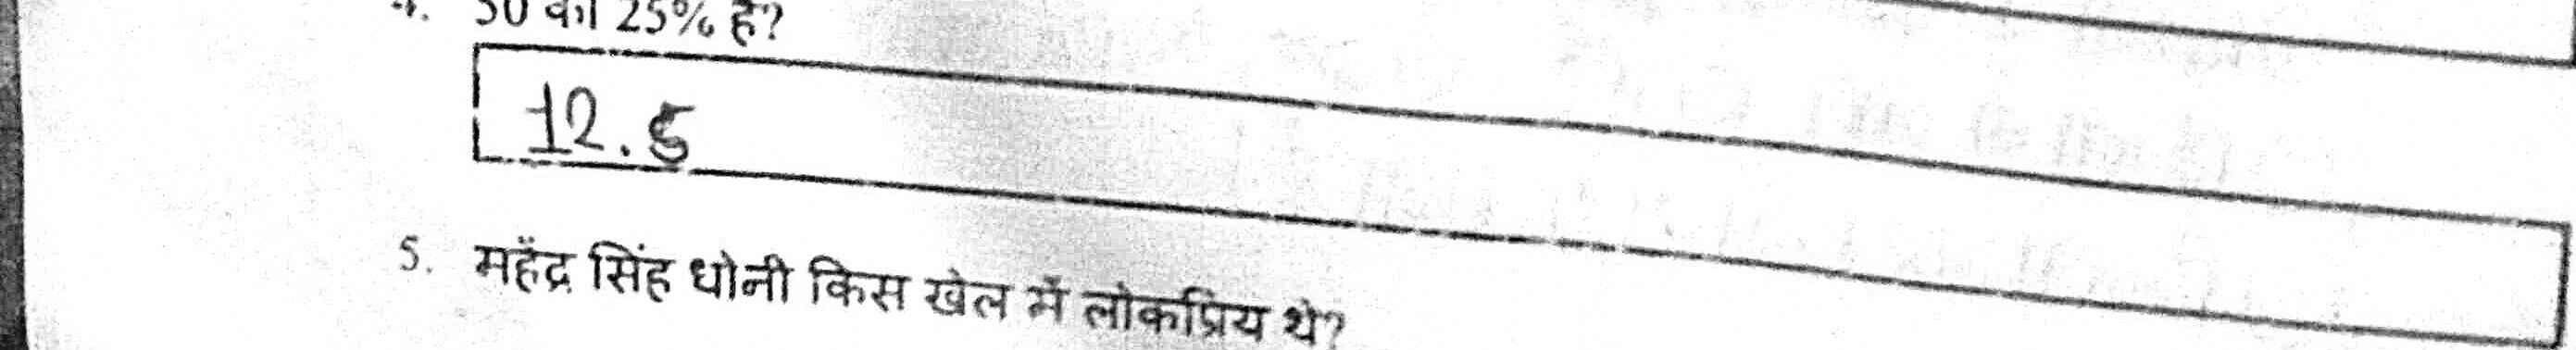 4. 50 का 25% है?
12.5
5. महेंद्र सिंह धोनी किस खेल में लोकप्रिय थे?